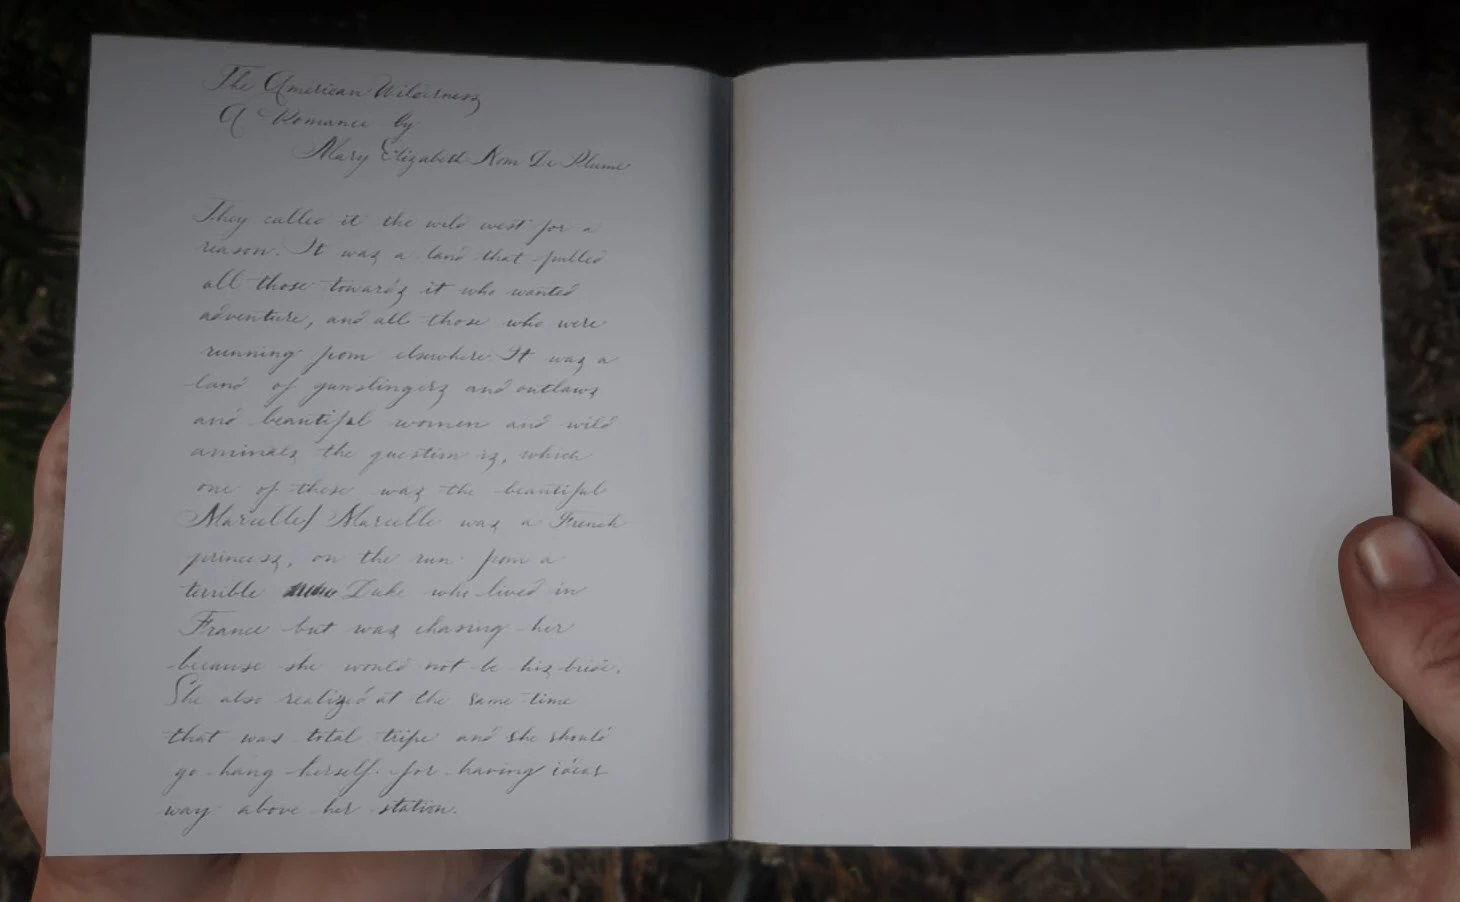 The American Wilderness
A Romance by:
Mary Elizabeth Nom De Plume
They called it the wild west for a
reason. It was a land that pulled
all those towards it who wanted
adventure, and all those who were
running from elsewhere. It was a
land of gunslingers and outlaws
and beautiful women and wild
aminals the question is, which
one of these was the beautiful
Marcelle/ Marcelle was a French
princess, on the run from a
terrible Duke who lived in
France but was chasing her
because she would not be his bride.
She also realized at the same time
that was total tripe and she should
go hang herself for having ideas
way above her station.